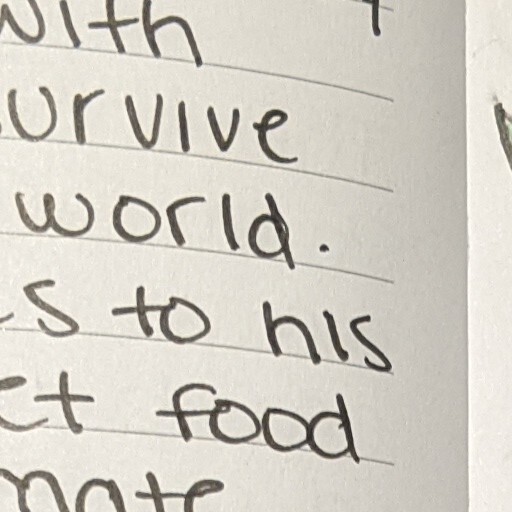 with
urvive
world.
s to his
et food
mate